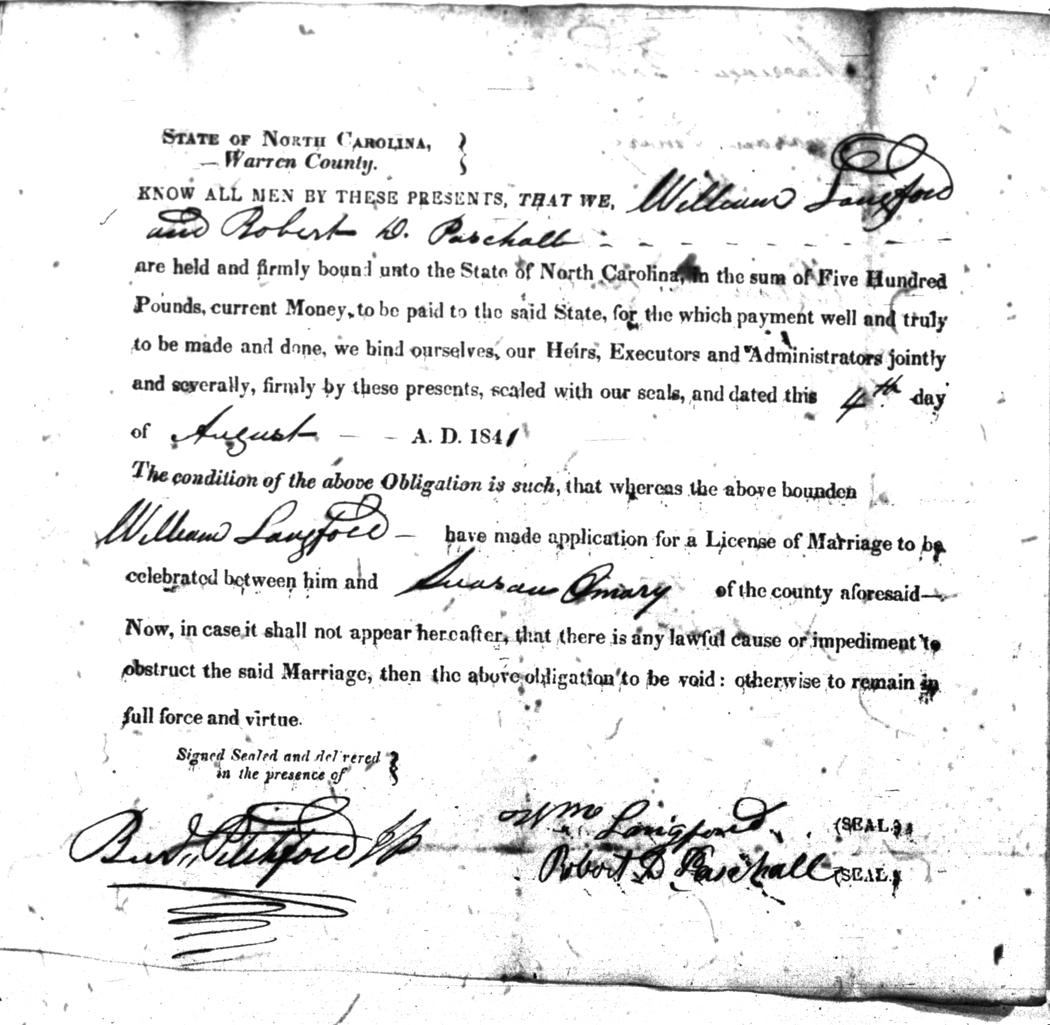 STATE OF NORTH CAROLINA, }
Warren County. }
KNOW ALL MEN BY THESE PRESENTS, THAT WE, William Langford
and Robert D. Paschall
are held and firmly bound unto the State of North Carolina, in the sum of Five Hundred
Pounds, current Money, to be paid to the said State, for the which payment well and truly
to be made and done, we bind ourselves, our Heirs, Executors and Administrators jointly
and severally, firmly by these presents, sealed with our seals, and dated this 4th day
of August A. D. 1841
The condition of the above Obligation is such, that whereas the above bounden
William Langford have made application for a License of Marriage to be
celebrated between him and Omary of the county aforesaid
Now, in case it shall not appear hereafter, that there is any lawful cause or impediment to
obstruct the said Marriage, then the above obligation to be void: otherwise to remain in
full force and virtue.
Signed Sealed and delivered }
in the presence of }
Wm Langford (SEAL.)
Pitchford JP Robert D Paschall (SEAL.)